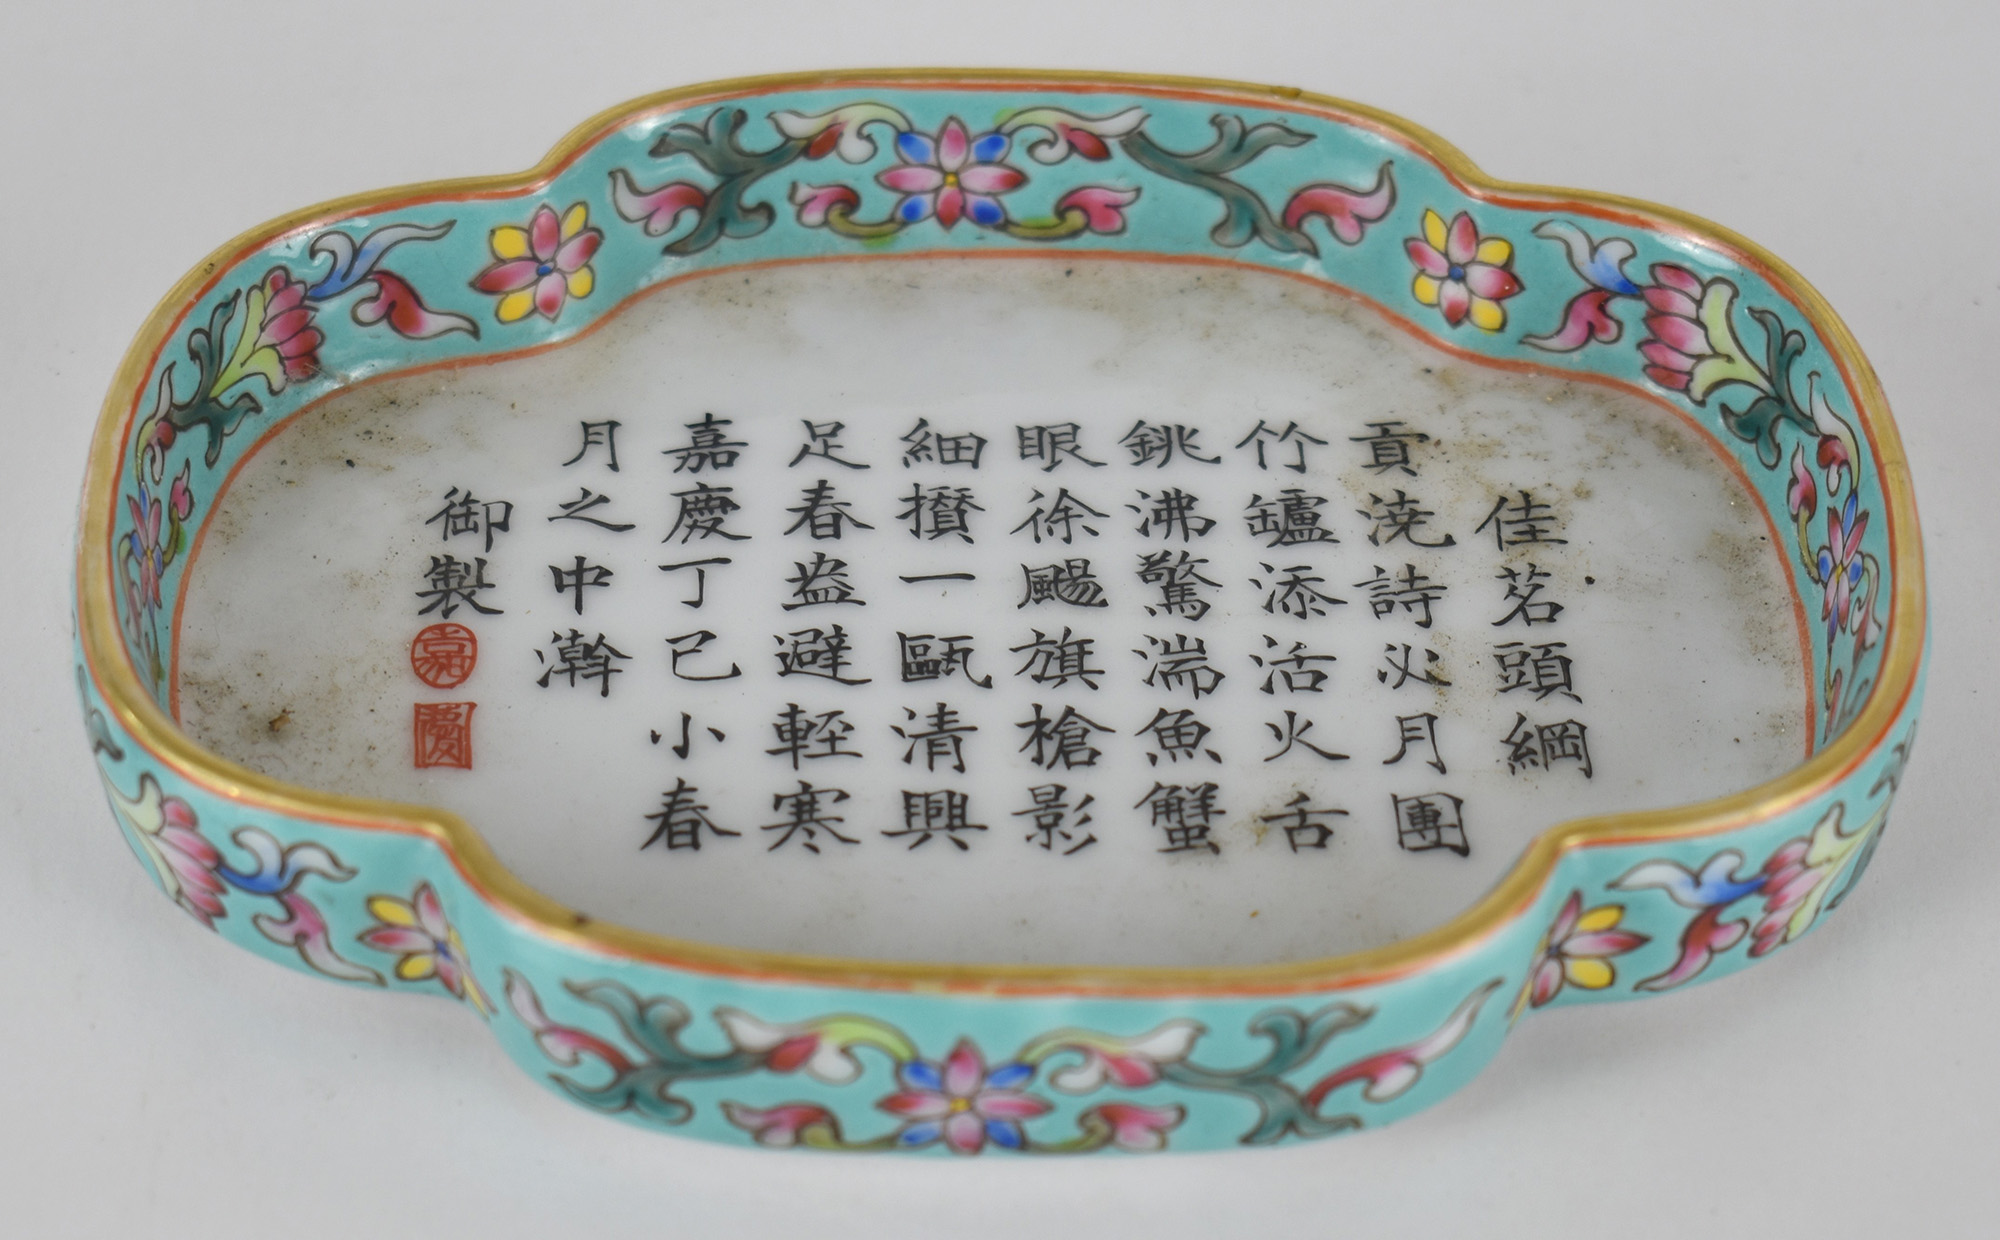 佳茗頭綱
貢澆詩必月團
竹罏添活火舌
銚沸驚湍魚蟹
眼徐颺旗槍影
細攢一甌清興
足春盎避輕寒
嘉慶丁巳小春
月之中澣
御製
嘉
慶